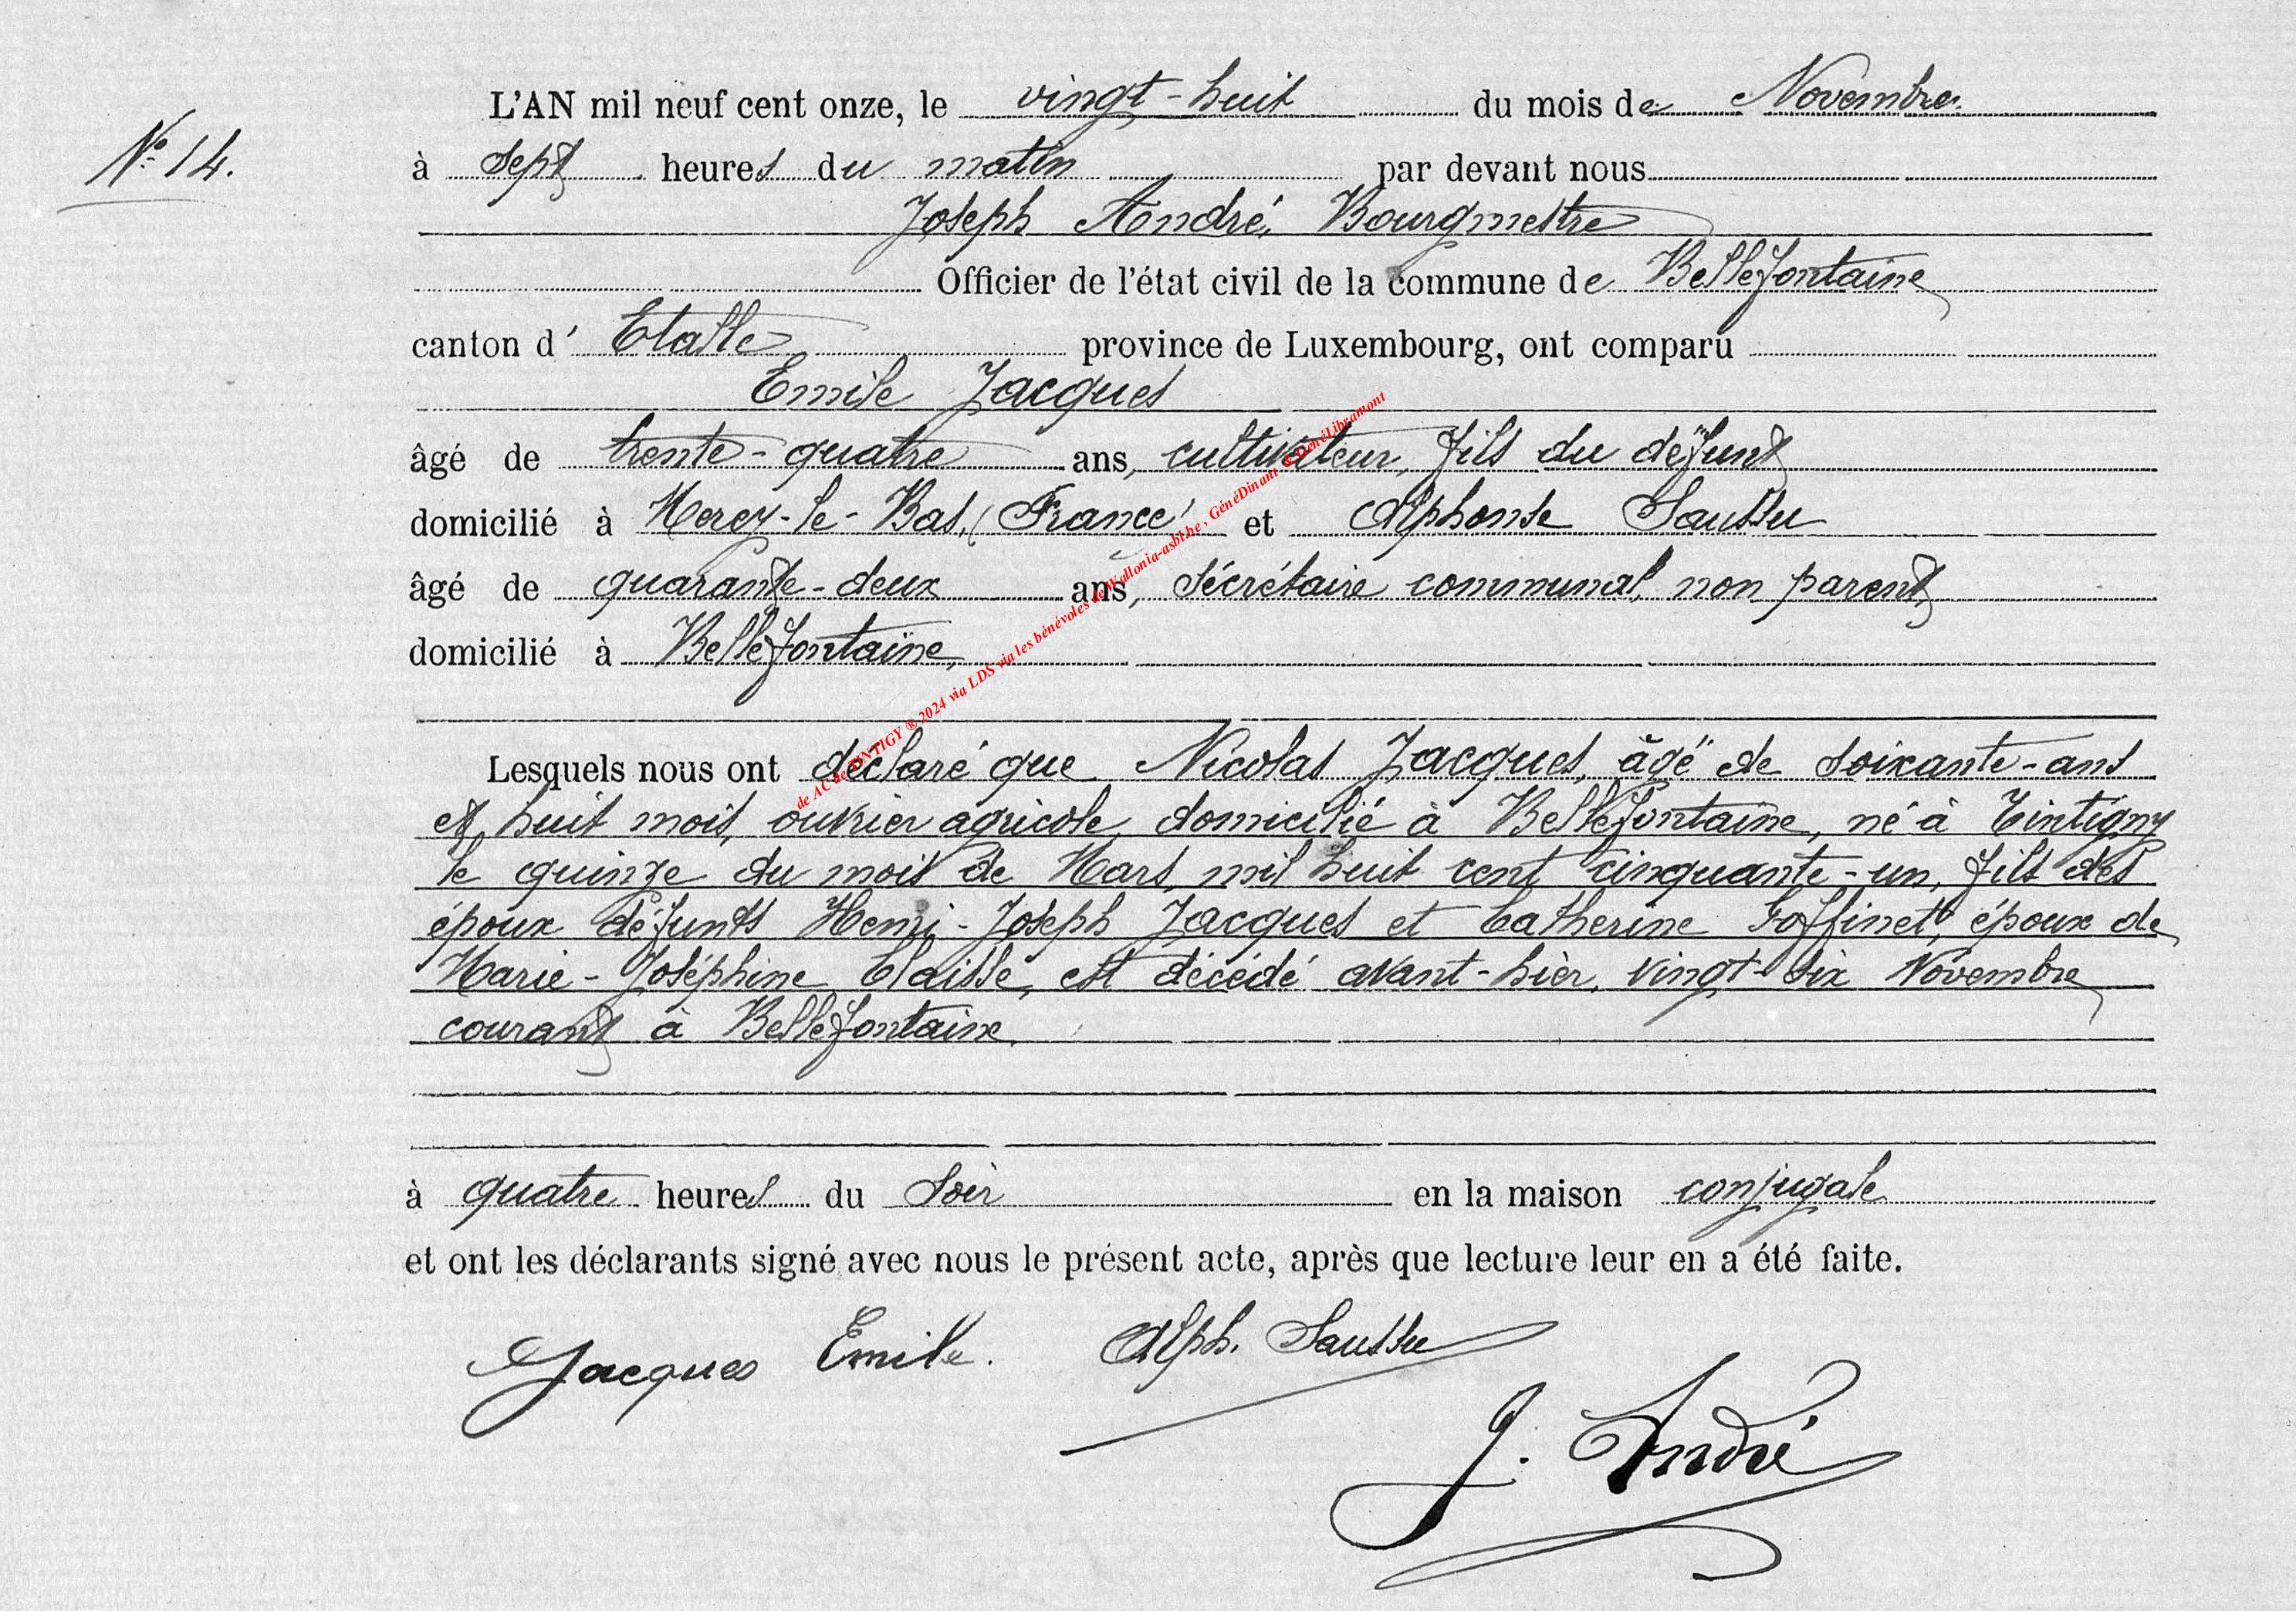 N° 14.
L'AN mil neuf cent onze, le vingt-huit du mois de Novembre
à sept heures du matin par devant nous
Joseph André, Bourgmestre
Officier de l'état civil de la commune de Bellefontaine
canton d' Etalle province de Luxembourg, ont comparu
Emile Jacques
âgé de trente-quatre ans, cultivateur, fils du défunt
domicilié à Mercy-le-Bas, (France) et Alphonse Saussu
âgé de quarante-deux ans, sécrétaire communal, non parent,
domicilié à Bellefontaine,
Lesquels nous ont déclaré que Nicolas Jacques, âgé de soixante-ans
et huit mois, ouvrier agricole, domicilié à Bellefontaine, né à Tintigny
le quinze du mois de Mars, mil huit cent cinquante-un, fils des
époux défunts Henri-Joseph Jacques et Catherine Goffinet, époux de
Marie-Joséphine Claisse, est décédé avant-hier, vingt-six Novembre
courant à Bellefontaine.
à quatre heures du soir en la maison conjugale
et ont les déclarants signé avec nous le présent acte, après que lecture leur en a été faite.
Jacques Emile. Alph. Saussu
J. André
de AC de TINTIGY ® 2024 via LDS via les bénévoles de Wallonia-asbl.be, GénéDinant & GénéLibramont